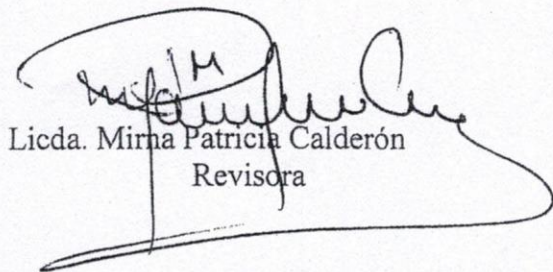 Licda. Mirna Patricia Calderón
Revisora